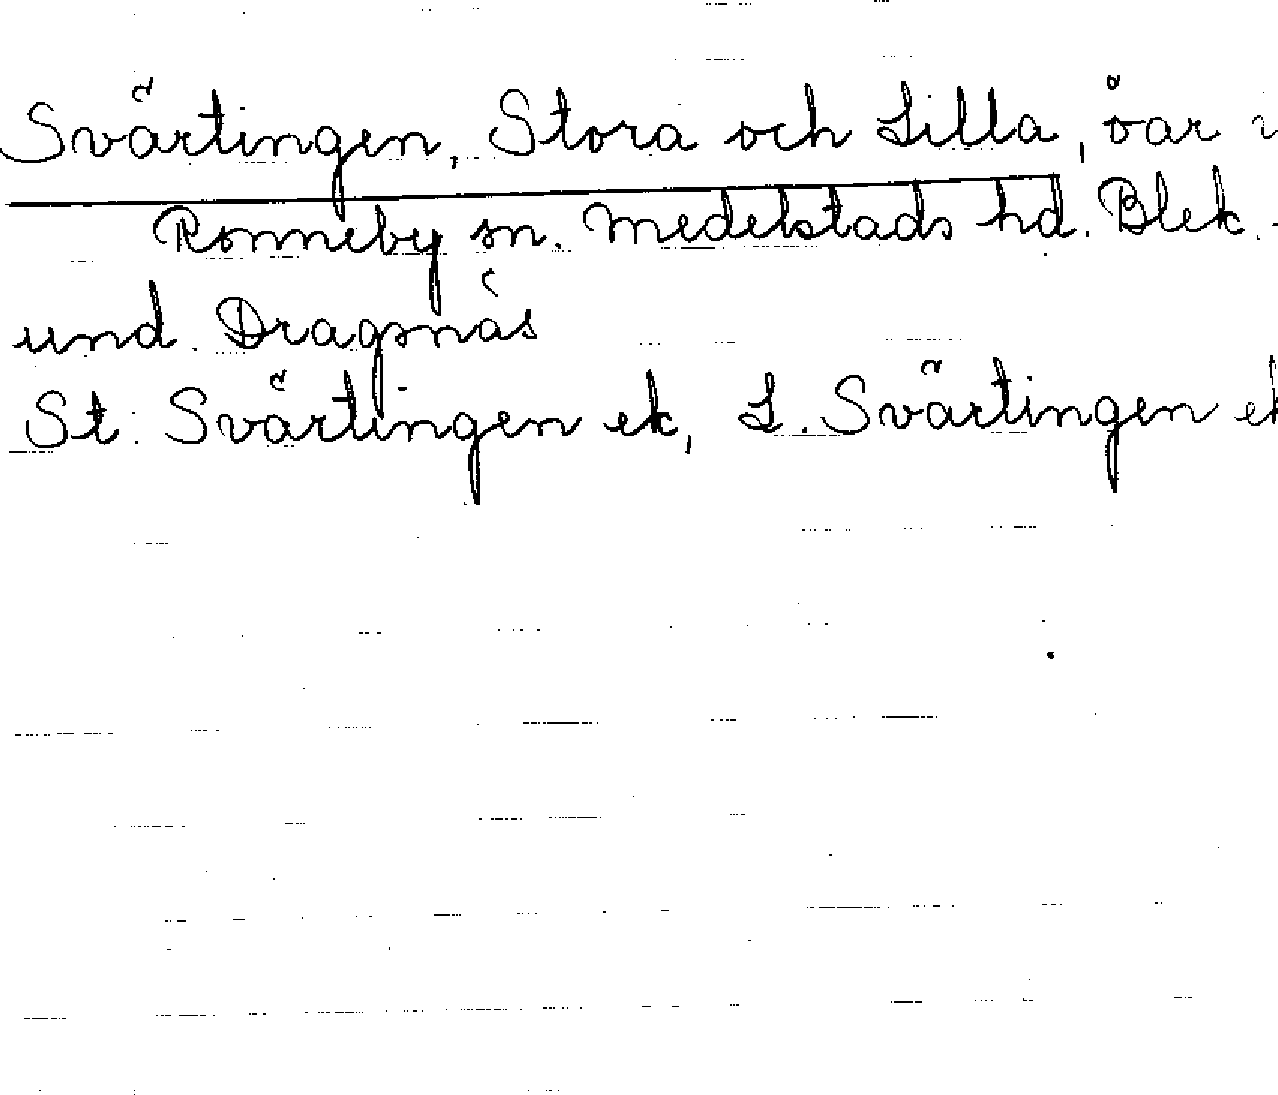 Svärtingen, Stora och Lilla, öar i
Ronneby sn. Medelstads hd. Blek.
und. Dragsnäs
St. Svärtingen ek, L. Svärtingen ek